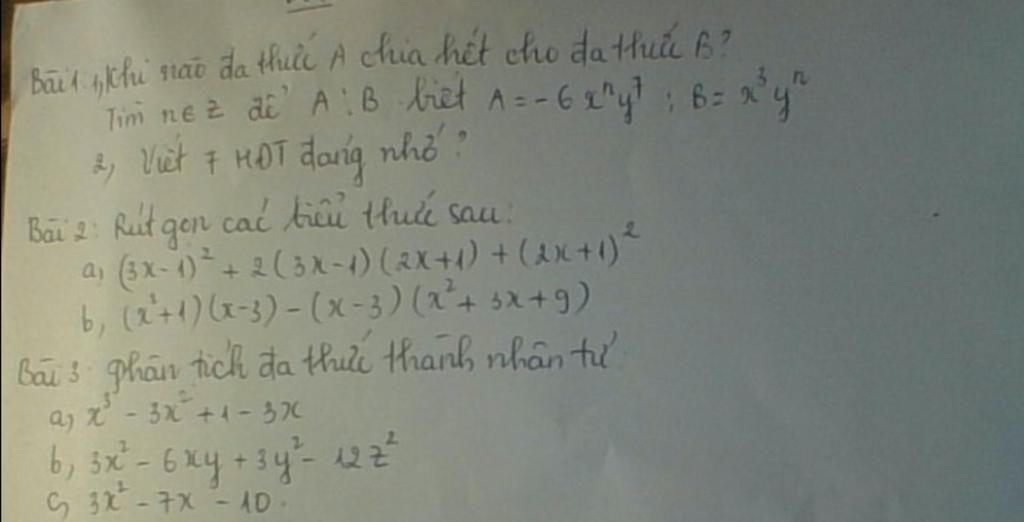 Bài 1: 1, Khi nào đa thức A chia hết cho đa thức B?
Tìm n∈Z để A⋮B biết A = -6xⁿy⁷; B = x³yⁿ
2, Viết 7 HĐT đáng nhớ?
Bài 2: Rút gọn các biểu thức sau:
a, (3x-1)² + 2(3x-1)(2x+1) + (2x+1)²
b, (x²+1)(x-3) - (x-3)(x²+3x+9)
Bài 3: phân tích đa thức thành nhân tử
a, x³ - 3x² + 1 - 3x
b, 3x² - 6xy + 3y² - 12z²
c, 3x² - 7x - 10.